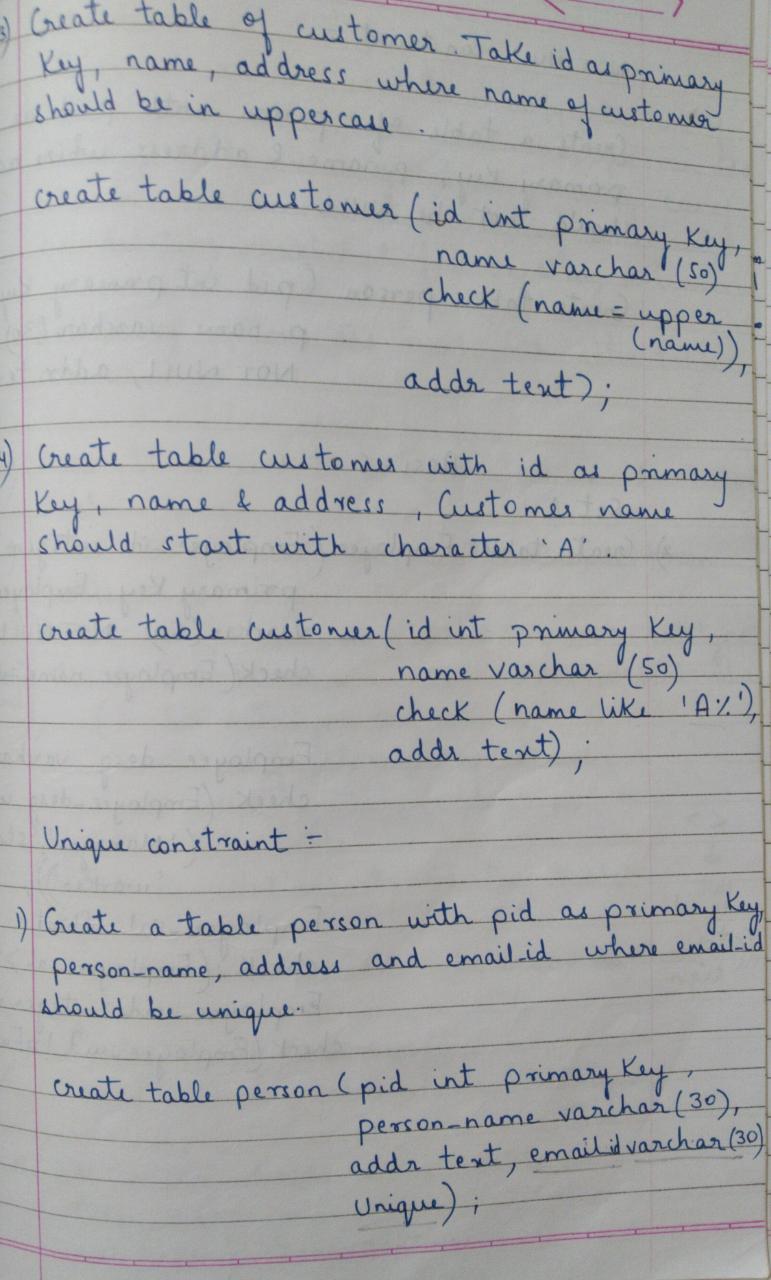 3) Create table of customer. Take id as primary
Key, name, address where name of customer
should be in uppercase.
create table customer (id int primary Key,
name varchar (50)
check (name = upper
(name)),
addr text);
4) Create table customer with id as primary
Key, name & address, Customer name
should start with character 'A'.
create table customer( id int primary Key,
name varchar (50)
check (name like 'A%'),
addr text);
Unique constraint :-
1) Create a table person with pid as primary Key,
person-name, address and email-id where email-id
should be unique.
create table person (pid int primary Key,
person-name varchar(30),
addr text, emailid varchar(30)
Unique);